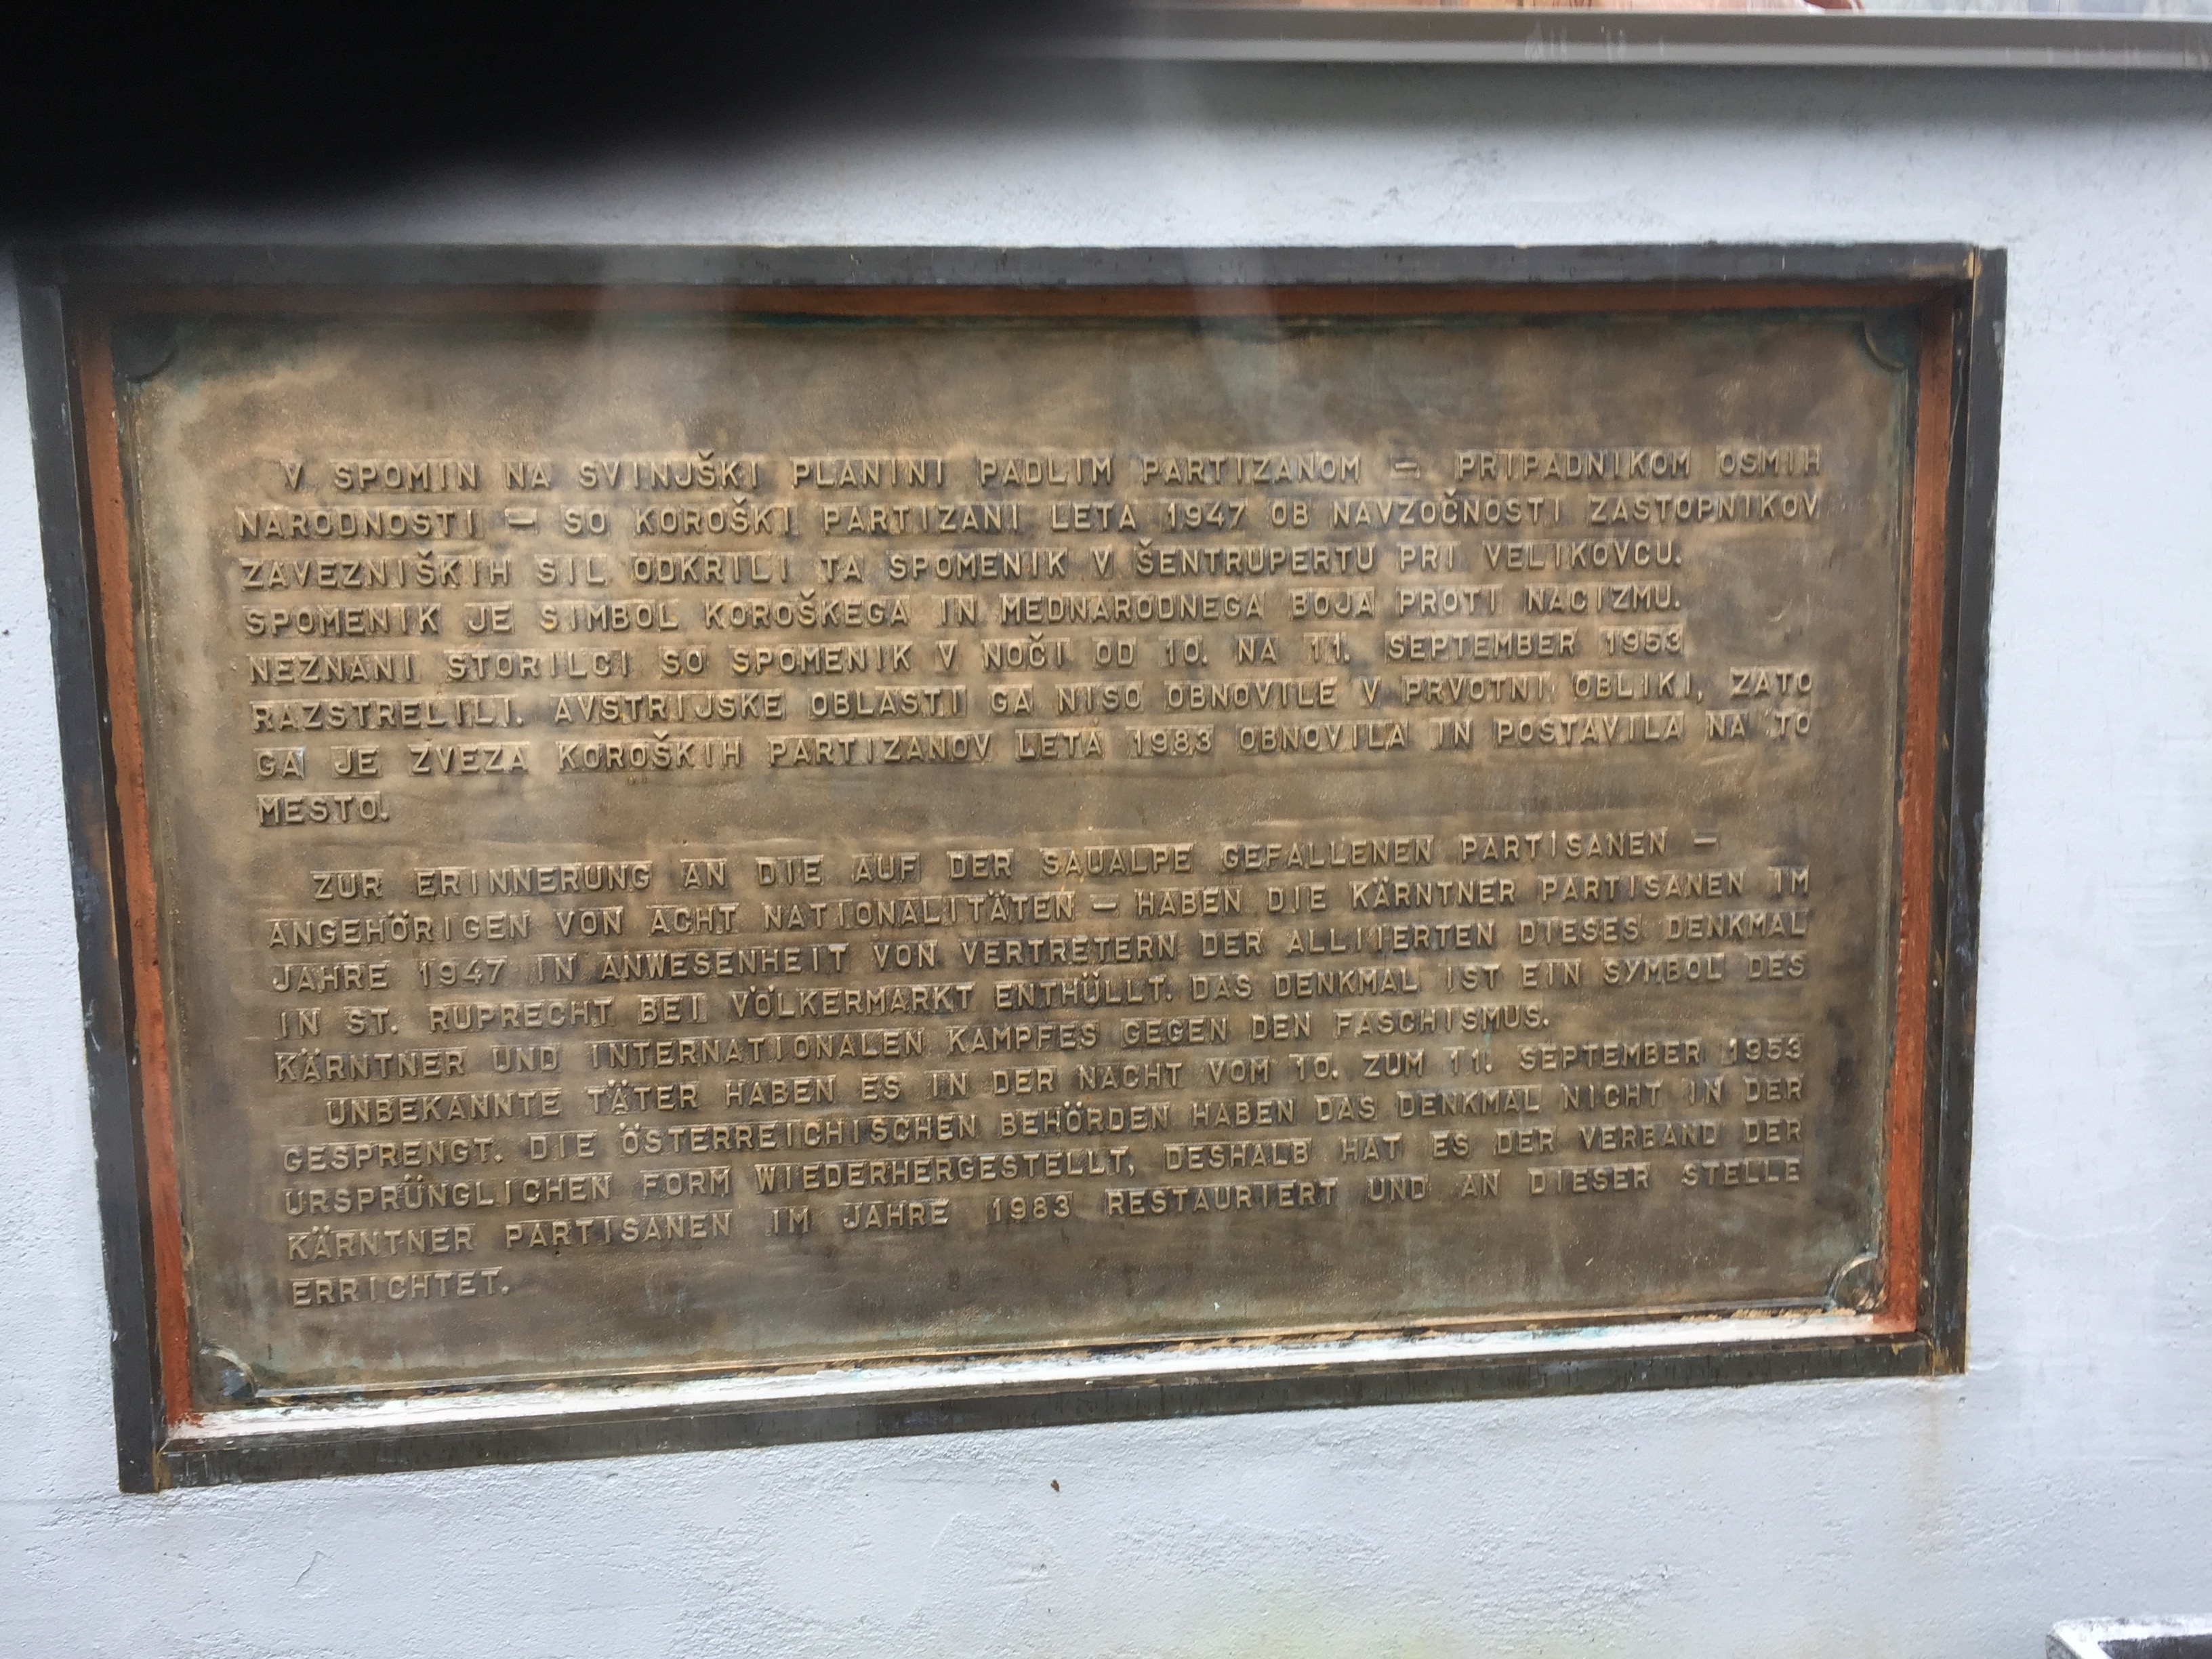 V SPOMIN NA SVINJŠKI PLANINI PADLIM PARTIZANOM – PRIPADNIKOM OSMIH
NARODNOSTI – SO KOROŠKI PARTIZANI LETA 1947 OB NAVZOČNOSTI ZASTOPNIKOV
ZAVEZNIŠKIH SIL ODKRILI TA SPOMENIK V ŠENTRUPERTU PRI VELIKOVCU.
SPOMENIK JE SIMBOL KOROŠKEGA IN MEDNARODNEGA BOJA PROTI NACIZMU.
NEZNANI STORILCI SO SPOMENIK V NOČI OD 10. NA 11. SEPTEMBER 1953
RAZSTRELILI. AVSTRIJSKE OBLASTI GA NISO OBNOVILE V PRVOTNI OBLIKI, ZATO
GA JE ZVEZA KOROŠKIH PARTIZANOV LETA 1983 OBNOVILA IN POSTAVILA NA TO
MESTO.
ZUR ERINNERUNG AN DIE AUF DER SAUALPE GEFALLENEN PARTISANEN –
ANGEHÖRIGEN VON ACHT NATIONALITÄTEN – HABEN DIE KÄRNTNER PARTISANEN IM
JAHRE 1947 IN ANWESENHEIT VON VERTRETERN DER ALLIIERTEN DIESES DENKMAL
IN ST. RUPRECHT BEI VÖLKERMARKT ENTHÜLLT. DAS DENKMAL IST EIN SYMBOL DES
KÄRNTNER UND INTERNATIONALEN KAMPFES GEGEN DEN FASCHISMUS.
UNBEKANNTE TÄTER HABEN ES IN DER NACHT VOM 10. ZUM 11. SEPTEMBER 1953
GESPRENGT. DIE ÖSTERREICHISCHEN BEHÖRDEN HABEN DAS DENKMAL NICHT IN DER
URSPRÜNGLICHEN FORM WIEDERHERGESTELLT, DESHALB HAT ES DER VERBAND DER
KÄRNTNER PARTISANEN IM JAHRE 1983 RESTAURIERT UND AN DIESER STELLE
ERRICHTET.